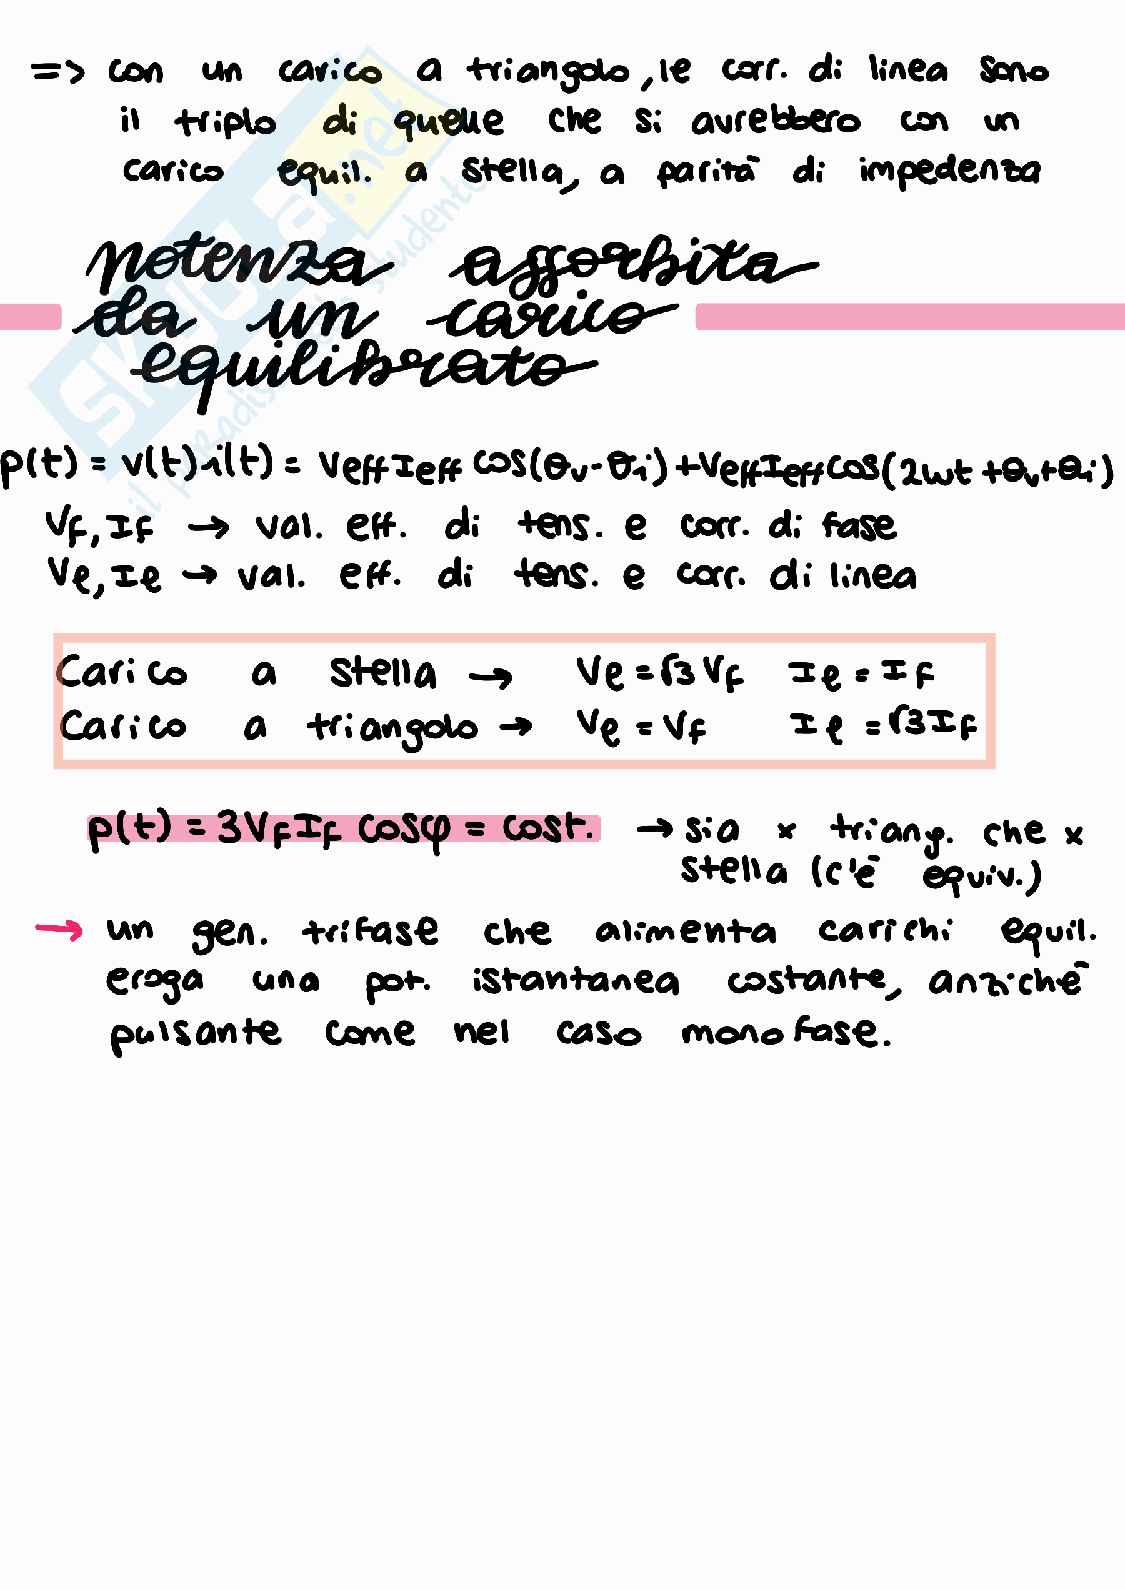 => con un carico a triangolo, le corr. di linea sono
il triplo di quelle che si avrebbero con un
carico equil. a stella, a parità di impedenza
potenza assorbita
da un carico
equilibrato
p(t) = v(t)·i(t) = VeffIeff cos(θv-θi) + VeffIeff cos(2ωt + θv + θi)
VF, IF → val. eff. di tens. e corr. di fase
Vℓ, Iℓ → val. eff. di tens. e corr. di linea
Carico a stella → Vℓ = √3 VF Iℓ = IF
Carico a triangolo → Vℓ = VF Iℓ = √3 IF
p(t) = 3VFIF cosφ = cost. → sia x triang. che x
stella (c'è equiv.)
→ un gen. trifase che alimenta carichi equil.
eroga una pot. istantanea costante, anziché
pulsante come nel caso monofase.
SKUOLA.net
il paradiso dello studente